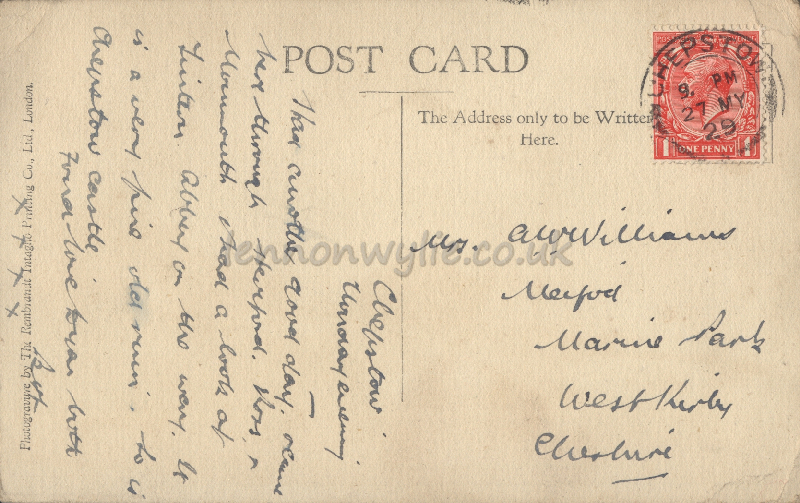 POST CARD
The Address only to be Written
Here.
CHEPSTOW
9. PM
27 MY
29
ONE PENNY
Mrs. A W Williams
Meifod
Marine Park
West Kirby
Cheshire
Chepstow
Monday evening
Had another good day. came
here through Hereford, Ross, &
Monmouth & had a look at
Tintern Abbey on the way. It
is a very fine old ruin. So is
Chepstow Castle
Fond love to you both
Photogravure by The Rembrandt Intaglio Printing Co., Ltd., London.
lennonwylie.co.uk